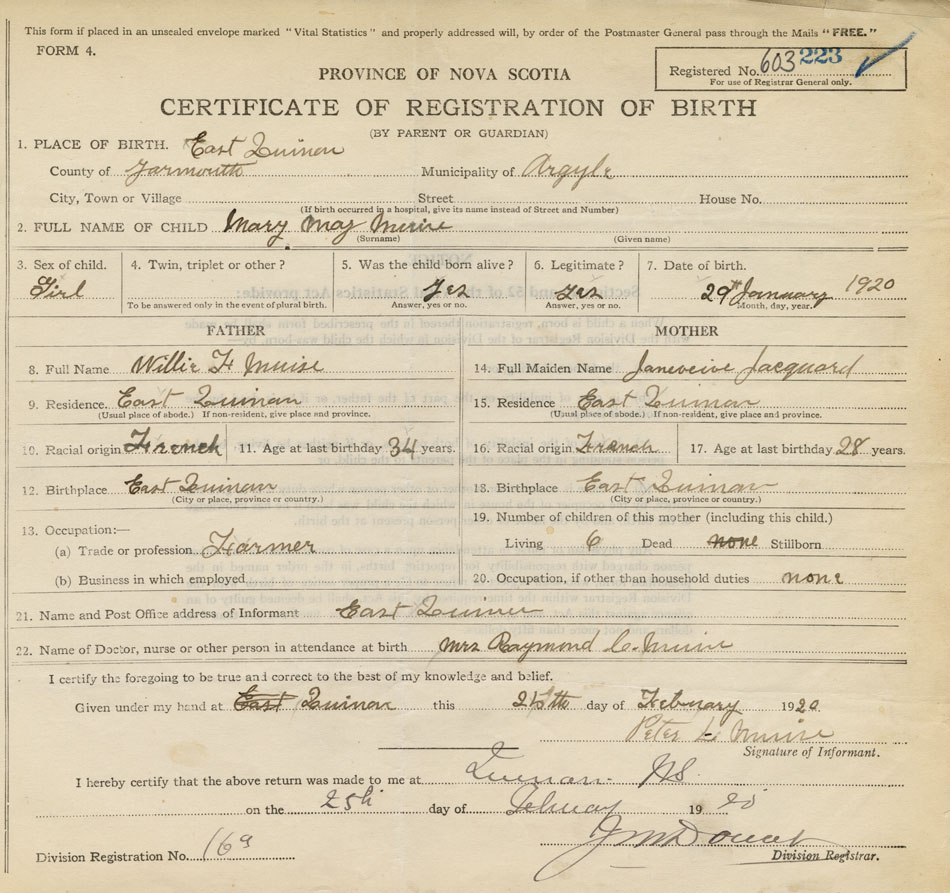 This form if placed in an unsealed envelope marked "Vital Statistics" and properly addressed will, by order of the Postmaster General pass through the Mails "FREE."
FORM 4.
Registered No. 603 223
For use of Registrar General only.
PROVINCE OF NOVA SCOTIA
CERTIFICATE OF REGISTRATION OF BIRTH
(BY PARENT OR GUARDIAN)
1. PLACE OF BIRTH. East Quinan
County of Yarmouth Municipality of Argyle
City, Town or Village Street House No.
(If birth occurred in a hospital, give its name instead of Street and Number)
2. FULL NAME OF CHILD Mary May Muise
(Surname) (Given name)
3. Sex of child. 4. Twin, triplet or other? 5. Was the child born alive? 6. Legitimate? 7. Date of birth.
Girl Yes Yes 29th January 1920
To be answered only in the event of plural birth. Answer, yes or no. Answer, yes or no. Month, day, year.
FATHER
8. Full Name Willie F Muise
9. Residence. East Quinan
(Usual place of abode.) If non-resident, give place and province.
10. Racial origin French 11. Age at last birthday 34 years.
12. Birthplace East Quinan
(City or place, province or country.)
13. Occupation:—
(a) Trade or profession Farmer
(b) Business in which employed
MOTHER
14. Full Maiden Name Janeveive Jacquard
15. Residence East Quinan
(Usual place of abode.) If non-resident, give place and province.
16. Racial origin French 17. Age at last birthday 28 years.
18. Birthplace East Quinan
(City or place, province or country.)
19. Number of children of this mother (including this child.)
Living 6 Dead none Stillborn
20. Occupation, if other than household duties none
21. Name and Post Office address of Informant East Quinan
22. Name of Doctor, nurse or other person in attendance at birth Mrs Raymond C. Muise
I certify the foregoing to be true and correct to the best of my knowledge and belief.
Given under my hand at East Quinan this 25th day of February 1920
Peter L Muise
Signature of Informant.
I hereby certify that the above return was made to me at Quinan NS
on the 25th day of February 1920
Division Registration No. 169
Division Registrar.